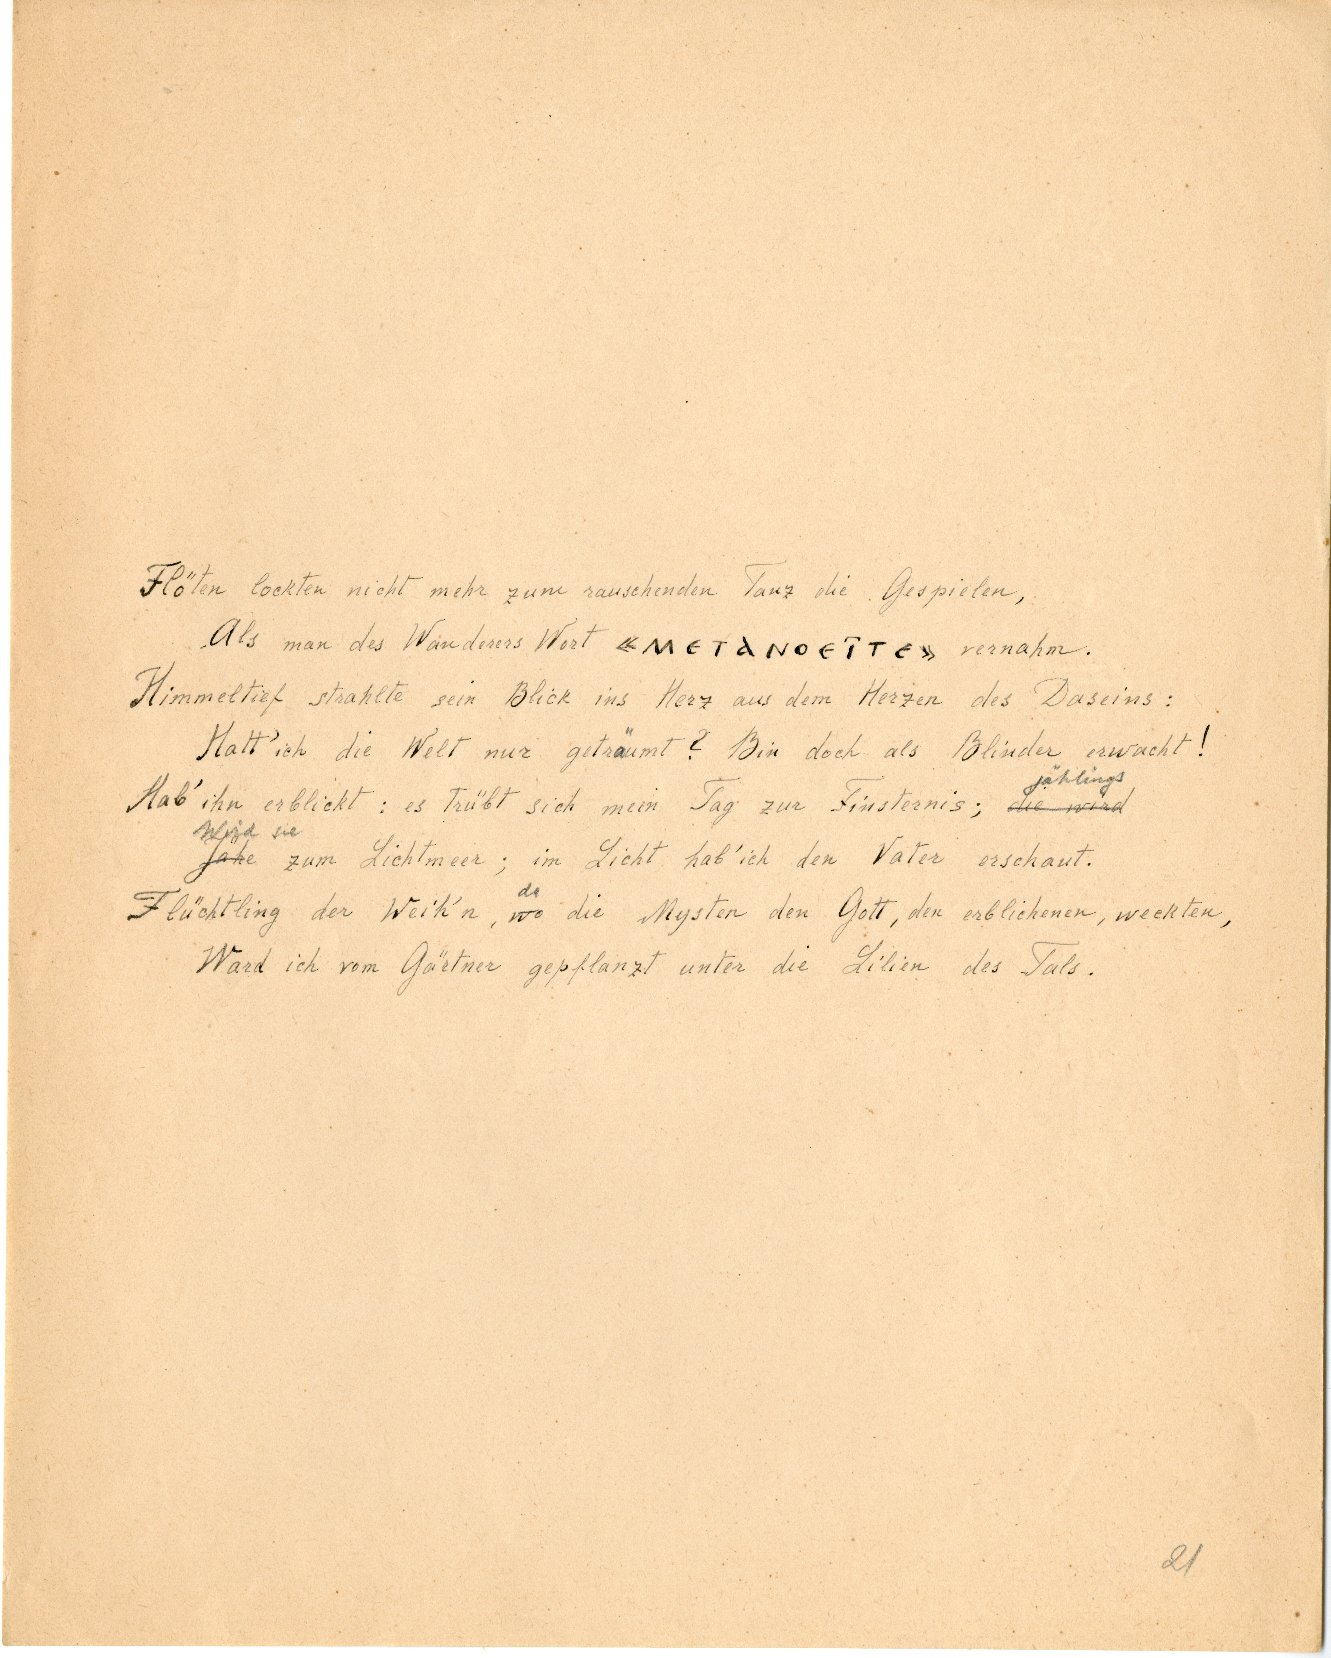 Flöten lockten nicht mehr zum rauschenden Tanz die Gespielen,
Als man des Wanderers Wort «ΜΕΤΑΝΟΕῖΤΕ» vernahm.
Himmeltief strahlte sein Blick ins Herz aus dem Herzen des Daseins:
Hatt' ich die Welt nur geträumt? Bin doch als Blinder erwacht!
jählings
Hab' ihn erblickt: es trübt sich mein Tag zur Finsternis; die wird
Wird sie
Jähe zum Lichtmeer; im Licht hab' ich den Vater erschaut.
da
Flüchtling der Weih'n, wo die Mysten den Gott, den erblichenen, weckten,
Ward ich vom Gärtner gepflanzt unter die Lilien des Tals.
21